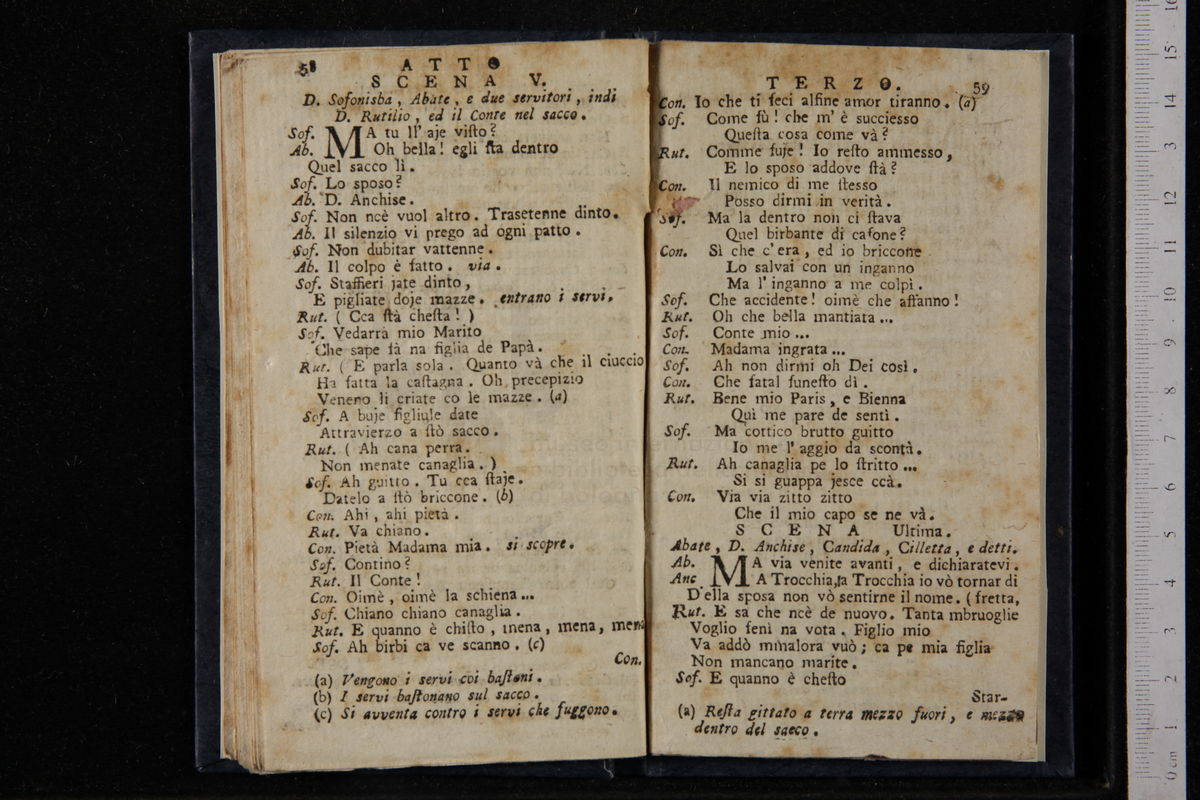 58
ATTO
SCENA V.
D. Sofonisba, Abate, e due servitori, indi
D. Rutilio, ed il Conte nel sacco.
Sof. MA tu ll' aje viſto?
Ab. Oh bella! egli ſta dentro
Quel sacco lì.
Sof. Lo sposo?
Ab. D. Anchise.
Sof. Non ncè vuol altro. Trasetenne dinto.
Ab. Il silenzio vi prego ad ogni patto.
Sof. Non dubitar vattenne.
Ab. Il colpo è fatto. via.
Sof. Staffieri jate dinto,
E pigliate doje mazze. entrano i servi.
Rut. ( Cca ſtà cheſta! )
Sof. Vedarrà mio Marito
Che sape fà na figlia de Papà.
Rut. ( E parla sola. Quanto và che il ciuccio
Ha fatta la caſtagna. Oh precepizio
Veneno li criate co le mazze. (a)
Sof. A buje figliule date
Attravierzo a ſtò sacco.
Rut. ( Ah cana perra.
Non menate canaglia. )
Sof. Ah guitto. Tu cca ſtaje.
Datelo a ſtò briccone. (b)
Con. Ahi, ahi pietà.
Rut. Va chiano.
Con. Pietà Madama mia. si scopre.
Sof. Contino?
Rut. Il Conte!
Con. Oimè, oimè la schiena...
Sof. Chiano chiano canaglia.
Rut. E quanno è chiſto, mena, mena, mena
Sof. Ah birbi ca ve scanno. (c)
Con.
(a) Vengono i servi coi baſtoni.
(b) I servi baſtonano sul sacco.
(c) Si avventa contro i servi che fuggono.
TERZO. 59
Con. Io che ti feci alfine amor tiranno. (a)
Sof. Come fù! che m' è succieſso
Queſta cosa come và?
Rut. Comme fuje! Io reſto ammesso,
E lo sposo addove ſtà?
Con. Il nemico di me ſtesso
Posso dirmi in verità.
Sof. Ma la dentro non ci ſtava
Quel birbante di cafone?
Con. Sì che c' era, ed io briccone
Lo salvai con un inganno
Ma l' inganno a me colpì.
Sof. Che accidente! oimè che affanno!
Rut. Oh che bella mantiata...
Sof. Conte mio...
Con. Madama ingrata...
Sof. Ah non dirmi oh Dei così.
Con. Che fatal funeſto dì.
Rut. Bene mio Paris, e Bienna
Quì me pare de sentì.
Sof. Ma cottico brutto guitto
Io me l' aggio da scontà.
Rut. Ah canaglia pe lo ſtritto...
Si si guappa jesce ccà.
Con. Via via zitto zitto
Che il mio capo se ne và.
SCENA Ultima.
Abate, D. Anchise, Candida, Cilletta, e detti.
Ab. MA via venite avanti, e dichiaratevi.
Anc. A Trocchia, a Trocchia io vò tornar di
Della sposa non vò sentirne il nome. (fretta,
Rut. E sa che ncè de nuovo. Tanta mbruoglie
Voglio fenì na vota. Figlio mio
Va addò mmalora vuò; ca pe mia figlia
Non mancano marite.
Sof. E quanno è cheſto
Star-
(a) Reſta gittato a terra mezzo fuori, e mezzo
dentro del sacco.